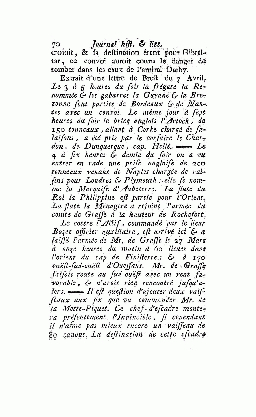 70 Journal hist. & litt.
croisit, & sa destination étant pour Gibral-
tar, ce convoi auroit couru le danger de
tomber dans les eaux de l'amiral Darby.
Extrait d'une lettre de Brest du 7 Avril.
Le 3 à 5 heures du soir la frégate la Re-
nommée & les gabarres la Guyane & la Bre-
tonne sont parties de Bordeaux & de Nan-
tes avec un convoi. Le même jour à sept
heures du soir le brick anglois
150 tonneaux, allant à Corke chargé de sa-
laisons, a été pris par le corsaire le Char-
don, de Dunquerque, cap. — Le
4 à six heures & demie du soir on a vu
entrer en rade une prise angloise de 200
tonneaux venant de Naples chargée de rai-
sins pour Londres & Plymouth : elle se nom-
me la Marquise d'Aubeterre. La flute du
Roi le Philippine est partie pour l'Orient.
La flute le Minotaure a rejoint l'armée du
comte de Grasse à la hauteur de Rochefort.
Le cutter commandé par le sieur
officier auxiliaire, est arrivé ici & a
laissé l'armée de Mr. de Grasse le 27 Mars
à onze heures du matin à 60 lieues dans
l'orient du cap de Finisterre; & à 150
sud-sud-ouest d'Ouessant. Mr. de Grasse
faisoit route au sud ouest avec un vent fa-
vorable, & n'avoit rien rencontré jusqu'a-
lors. — Il est question d'ajouter deux vais-
seaux aux six que va commander Mr. de
la Motte-Piquet. Ce chef-d'escadre monte-
ra présentement l'Invincible, si cependant
il n'aime pas mieux encore un vaisseau de
80 canons. La destination de cette escadre